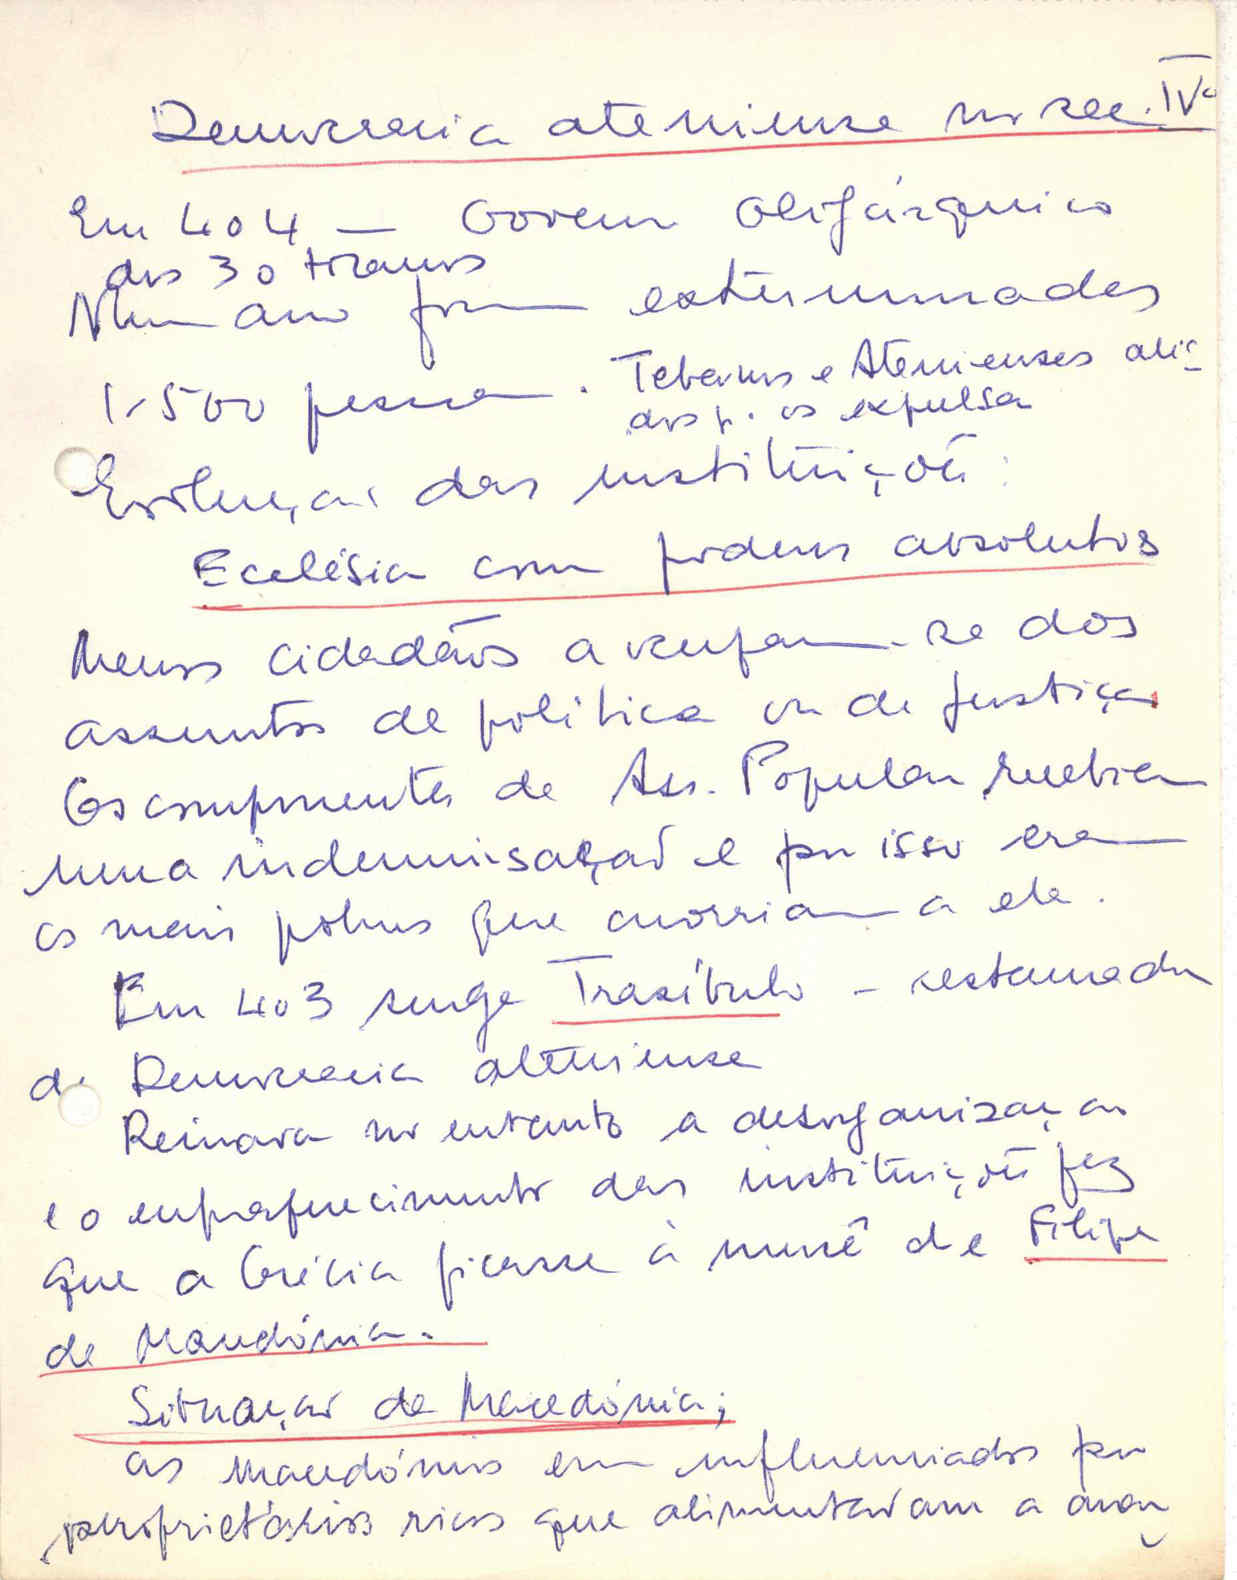 Democracia ateniense no sec. IVº
Em 404 — Governo Oligárquico
dos 30 tiranos
Num ano foram exterminados
1.500 pessoas. Tebanos e Atenienses alia-
dos p. os expulsar
Evolução das instituições:
Eclésia com poderes absolutos
Menos cidadãos a ocupam-se dos
assuntos de política ou de justiça
Os componentes da Ass. Popular recebiam
uma indemnisação e por isso eram
os mais pobres que acorriam a ela.
Em 403 surge Trasíbulo – restaurador
da Democracia ateniense
Reinava no entanto a desorganização
e o enfraquecimento das instituições fez
que a Grécia ficasse à mercê de Filipe
de Macedónia.
Situação da Macedónia;
os Macedónios eram influenciados por
proprietários ricos que alimentavam a